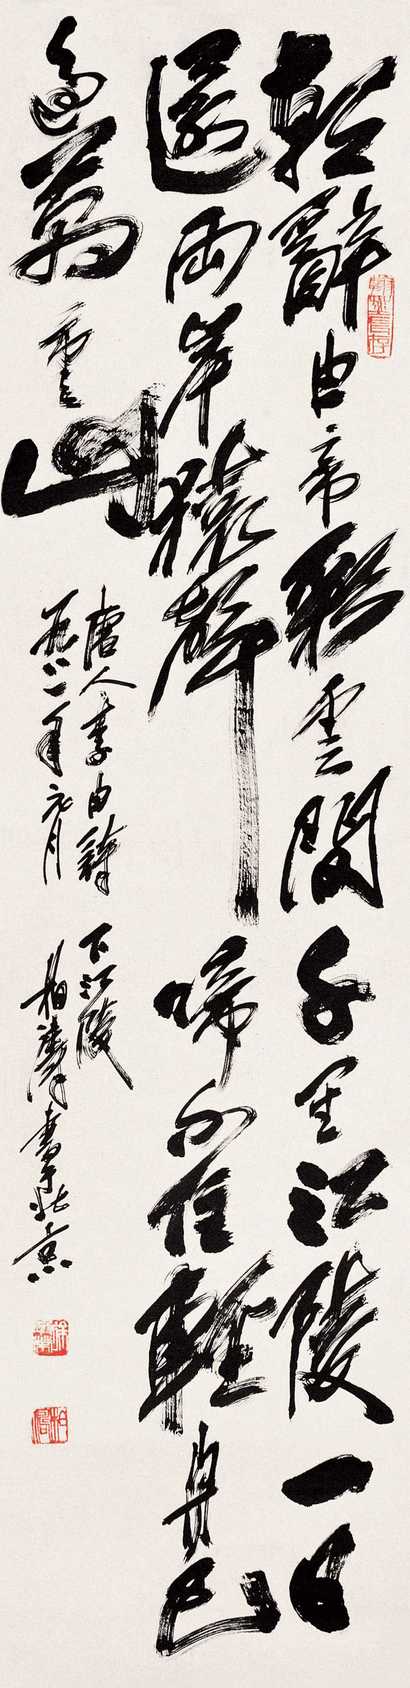 朝辞白帝彩雲間千里江陵一日
還兩岸猿聲啼不住輕舟已
過萬重山
唐人李白詩 下江陵
一九八一年元月 柏濤書于北京